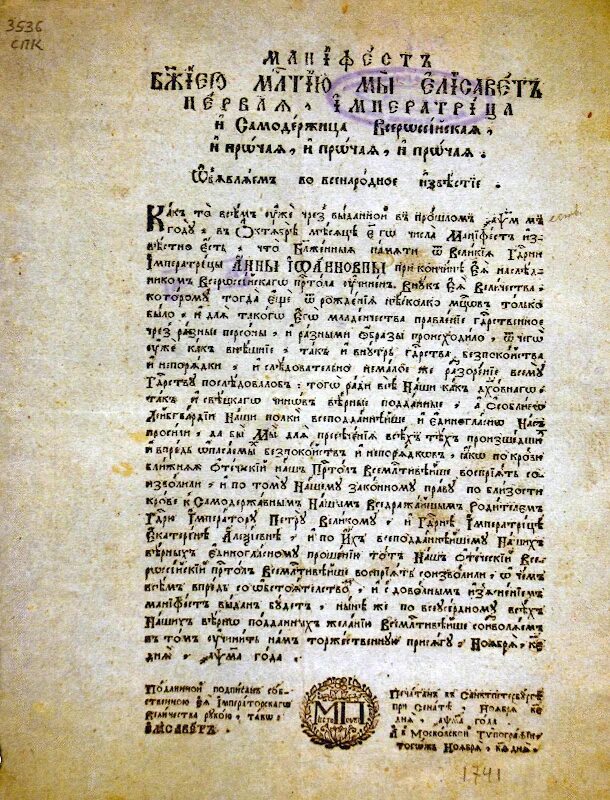 3536
СПК
МАНІФЕСТЪ
БЖ҃ІЕЮ МЛ҃ТІЮ МЫ ЕЛІСАВЕТЪ
ПЕРВАЯ, ІМПЕРАТРІЦА
И САМОДЕРЖИЦА ВСЕРОССІЙСКАЯ,
И ПРѠЧАЯ, И ПРѠЧАЯ, И ПРѠЧАЯ.
Ѡб҆ъявляемъ во всенародное извѣстіе.
Какъ то всѣмъ уже чрез выданной въ прошломъ ҂аѱм҃ мъ
году, въ Октябрѣ мѣсяцѣ числа Маніфестъ из-
вѣстно есть, что блаженныя памяти ѿ Великія Гдр҃ни
Імператрецы АННЫ ІѠАННОВНЫ при кончинѣ Ея наслѣд-
никомъ Всероссійскагѡ прⷭ҇тола учиненъ Внукъ Ея Величества,
которому тогда еще ѿ рожденія нѣсколко мцⷭ҇овъ только
было, и для такогѡ Егѡ младенчества правленіе гдⷭ҇рственное
чрез разные персоны, и разными ѡбразы происходило, ѿ чегѡ
уже какъ внѣшніе, такъ и внутрь гдⷭ҇рства безпокойства
и непорядки, и слѣдовательно немалое же разореніе всему
Гдⷭ҇рству послѣдовалобъ: тогѡ ради всѣ Наши какъ дх҃овнагѡ,
такъ и свѣцкагѡ чиновъ вѣрные подданные, а ѡсобливѡ
Лейбгвардіи Наши полки всеподданнѣйше и единогласнѡ Насъ
просили, да бы Мы для пресѣченія всѣхъ тѣхъ произшедшихъ
и впредь ѡпасаемыхъ безпокойствъ и непорядковъ, якѡ по крови
ближняя Ѿеческій нашъ Прⷭ҇толъ Всемлⷭ҇тивѣйше воспріять со-
изволили, и по тому Нашему законному праву по близости
крове къ Самодержавнымъ Нашимъ Вседражайшымъ Родителемъ
Гдр҃ю Імператору Петру Великому, и Гдр҃нѣ Імператрецѣ
Екатеринѣ Алеѯіевнѣ, и по Ихъ всеподданнѣйшему Нашихъ
вѣрныхъ единогласному прошенію тотъ Нашъ Ѿеческій Все-
россійскій прⷭ҇толъ Всемлⷭ҇тивѣйше воспріять соизволили, ѡ чемъ
всѣмъ впредь со ѡбстоятельствомъ, и съ довольнымъ изъясненіемъ
маніфестъ выданъ будетъ, нынѣ же по всеусердному всѣхъ
Нашихъ вѣрнѡ подданныхъ желанію Всемлⷭ҇тивѣйше соизволяемъ
въ томъ учинить намъ торжественную присягу, Ноября, к҃е
дня, ҂аѱм҃а года.
Подлинной подписанъ соб-
ственною ея Імператорскагѡ
Величества рукою, такѡ:
ЕЛІСАВЕТЪ.
МП
мѣсто печати
Печатанъ въ Санктпітербургѣ
при Сенатѣ, Ноября к҃е
дня, ҂аѱм҃а года.
А в Московской Тѵпографіи
тогожъ Ноября, дня.
1741